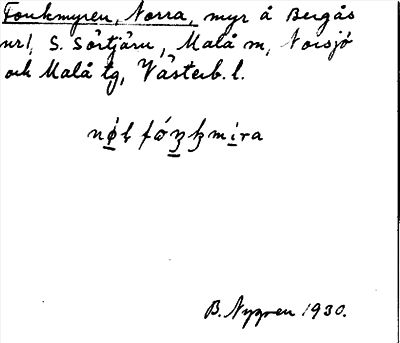 Fonkmyren, Norra, myr å Bergås
url, S. Sörtjärn, Malå sn, Norsjö
och Malå tg, Västerb. l.
B. Nygren 1930.